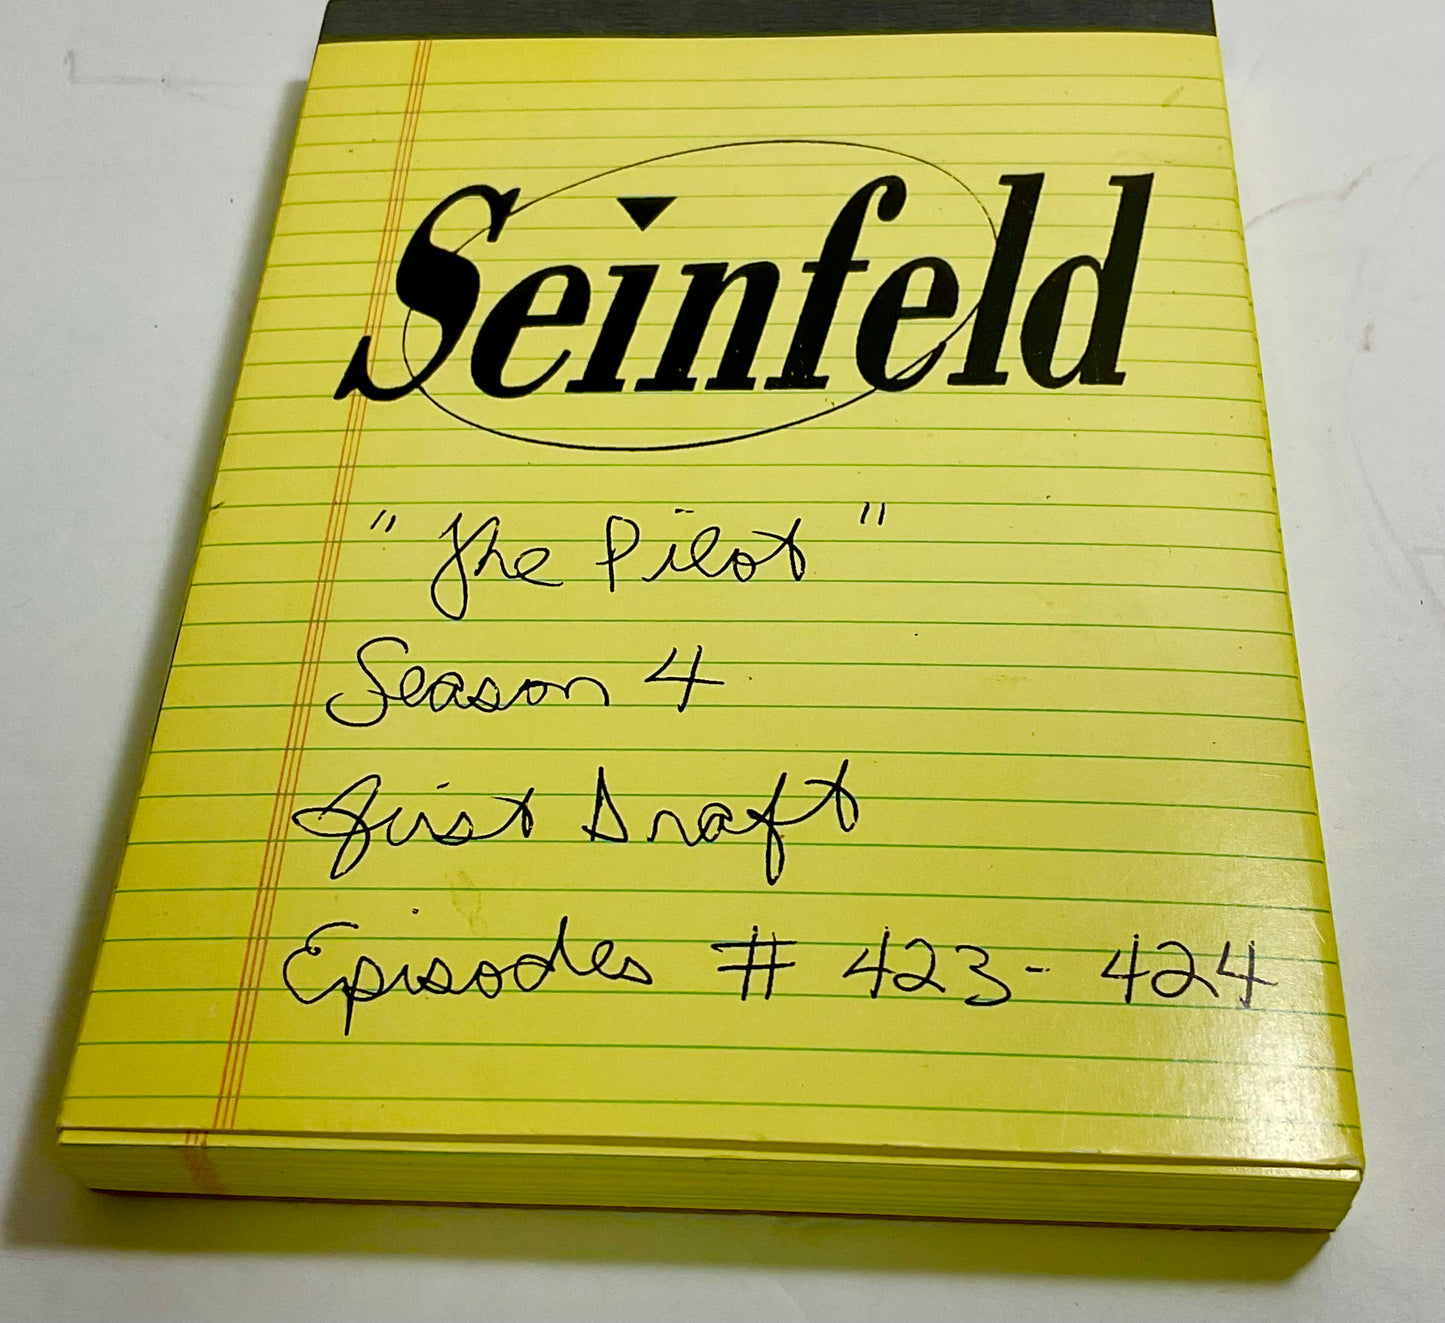 Seinfeld
"The Pilot"
Season 4
First Draft
Episodes # 423-424